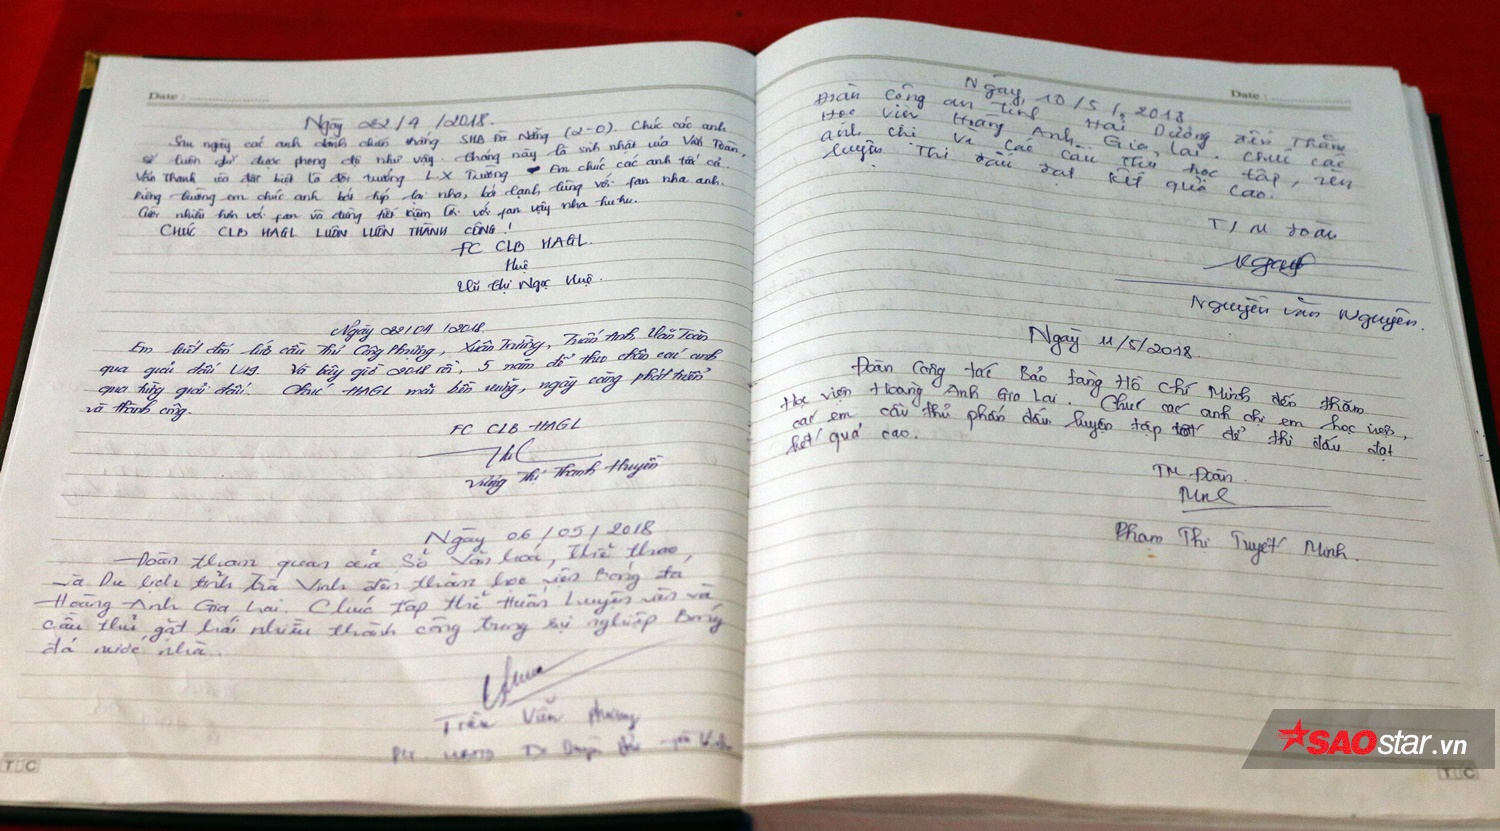 Date :
Ngày 22/4/2018.
Sau ngày các anh đánh chiến thắng SHB Đà Nẵng (2-0). Chúc các anh
sẽ luôn giữ được phong độ như vậy. Tháng này là sinh nhật của Văn Toàn,
Văn Thanh và đặc biệt là đội trưởng L.X Trường. Em chúc các anh tất cả.
Riêng Trường em chúc anh bớt híp lại nha, bớt lạnh lùng với fan nha anh.
Cười nhiều hơn với fan và đừng tiết kiệm lời với fan vậy nha huhu.
CHÚC CLB HAGL LUÔN LUÔN THÀNH CÔNG!
FC CLB HAGL.
Huệ
Vũ Thị Ngọc Huệ.
Ngày 22/04/2018.
Em biết đến lứa cầu thủ Công Phượng, Xuân Trường, Tuấn Anh, Văn Toàn
qua giải đấu U19. Và bây giờ 2018 rồi, 5 năm để theo chân các anh
qua từng giải đấu. Chúc HAGL mãi bền vững, ngày càng phát triển
và thành công.
FC CLB HAGL
Vương Thị Thanh Huyền
Ngày 06/05/2018
Đoàn tham quan của Sở Văn hoá, Thể thao,
và Du lịch tỉnh Trà Vinh đến thăm học viện Bóng đá
Hoàng Anh Gia Lai. Chúc tập thể Huấn Luyện viên và
cầu thủ gặt hái nhiều thành công trong sự nghiệp Bóng
đá nước nhà.
Trần Văn
TC
Date :
Ngày, 10/5/2018
Đoàn Công an tỉnh Hải Dương đến Thăm
Học viện Hoàng Anh Gia Lai. Chúc các
anh chị và các cầu thủ học tập, rèn
luyện Thi đấu đạt kết quả cao.
T/M Đoàn
Nguyễn Văn Nguyên.
Ngày 11/5/2018.
Đoàn Công tác Bảo tàng Hồ Chí Minh đến thăm
Học viện Hoàng Anh Gia Lai. Chúc các anh chị em học viên,
các em cầu thủ phấn đấu luyện tập tốt để thi đấu đạt
kết quả cao.
TM Đoàn
Phạm Thị Tuyết Minh.
SAOstar.vn
TC